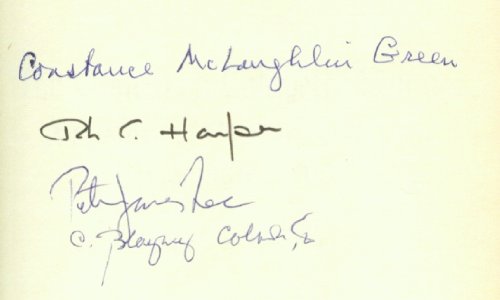 Constance McLaughlin Green
C. Harper
Peter James Lee
C. Blayney Colmore, Jr.